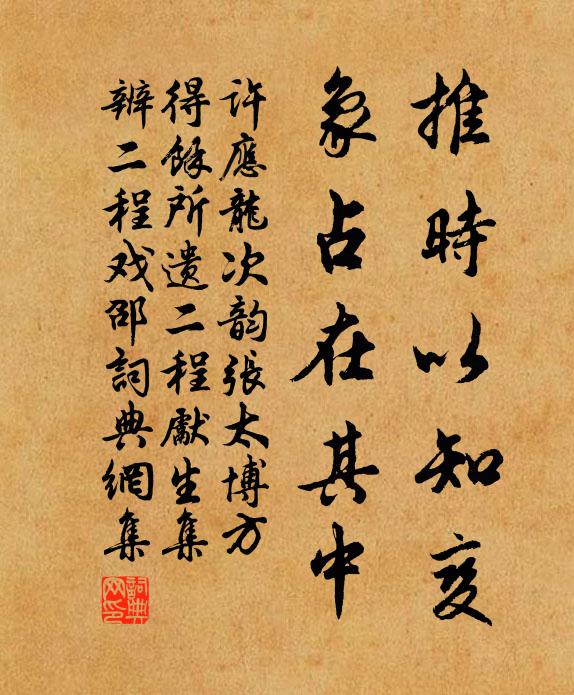 推時以知变
象占在其中
許應龍次韵張太博方
得餘所遺二程獻生集
辨二程戏邵詞典網集
詞典網印